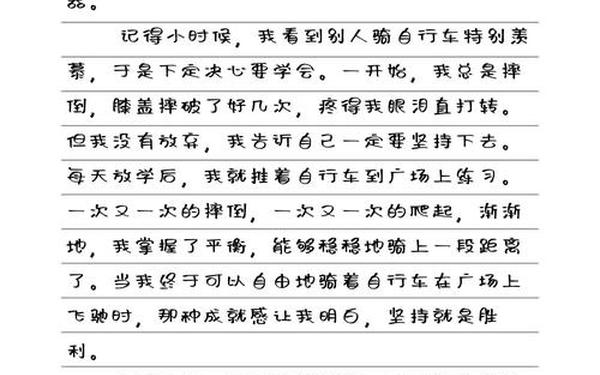 记得小时候，我看到别人骑自行车特别羡
慕，于是下定决心要学会。一开始，我总是摔
倒，膝盖摔破了好几次，疼得我眼泪直打转。
但我没有放弃，我告诉自己一定要坚持下去。
每天放学后，我就推着自行车到广场上练习。
一次又一次的摔倒，一次又一次的爬起，渐渐
地，我掌握了平衡，能够稳稳地骑上一段距离
了。当我终于可以自由地骑着自行车在广场上
飞驰时，那种成就感让我明白，坚持就是胜
利。